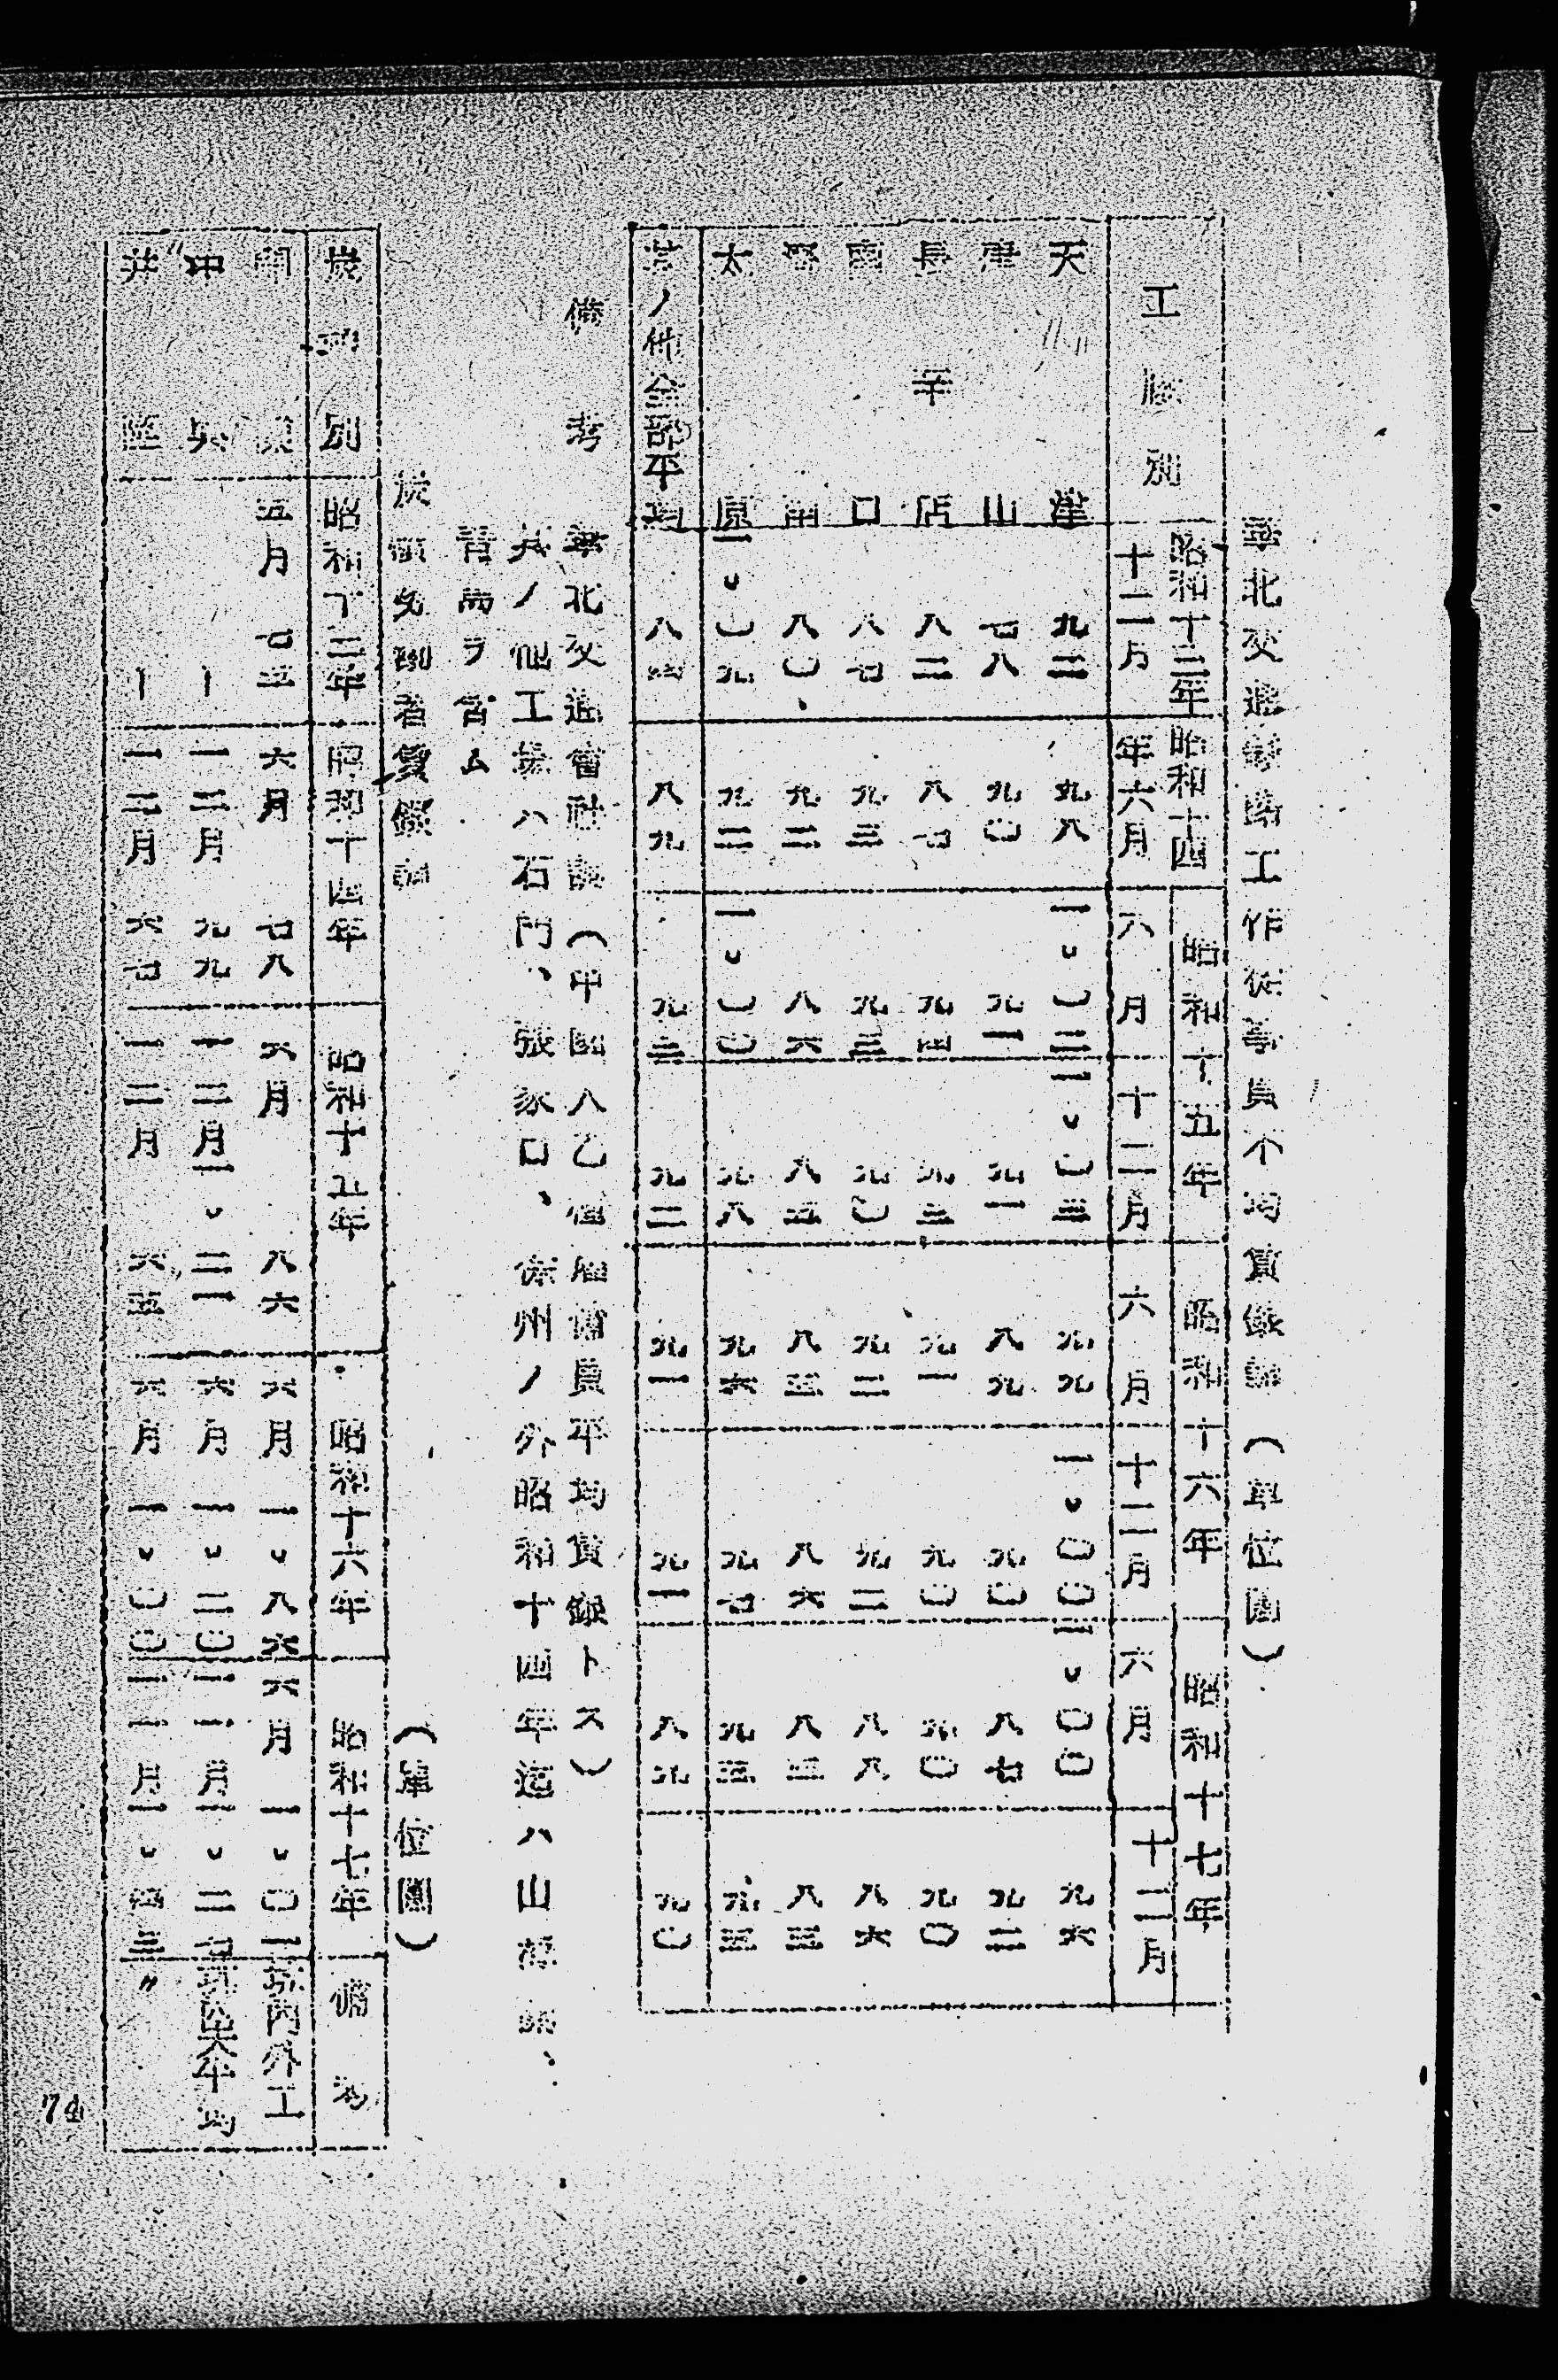 華北交通鉄路工作従事員平均賃銀調(単位圓)
工廠別
昭和十三年 十二月
昭和十四年六月
昭和十五年 六月 十二月
昭和十六年 六月 十二月
昭和十七年 六月 十二月
天津 九二 九八 一、〇三 一、〇三 九九 一、〇〇 一、〇〇 九六
唐山 七八 九〇 九一 九一 八九 九〇 八七 九二
長辛店 八二 八七 九四 九三 九一 九〇 九〇 九〇
南口 八七 九三 九三 九〇 九二 九二 八八 八六
済南 八〇 九二 八六 八五 八三 八六 八三 八三
太原 一、〇九 九二 一、〇〇 九八 九六 九七 九五 九三
其ノ他全部平均 八九 九三 九二 九一 九一 八九 九〇
備考
華北交通會社調(甲國八乙傭 平均賃銀トス)
其ノ他工場ハ石門、張家口、徐州ノ外昭和十四年迄ハ山海関、
ヲ含ム
炭礦労働者賃銀調
(単位圓)
炭礦別 昭和十三年 昭和十四年 昭和十五年 昭和十六年 昭和十七年 備考
開灤 五月 七五 六月 七八 六月 八六 六月 一、八六 六月 一、〇一 坑内外工
中興 ー 一二月 九九 一二月 一、二一 六月 一、二〇 一一月 一、二七 平均
井陘 ー 一二月 六七 一二月 六五 六月 一、〇〇 一一月 一、四三 〃
74